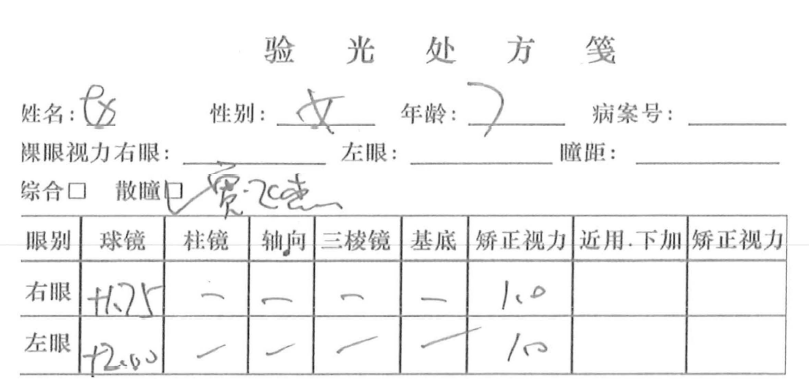 验光处方笺
姓名: 性别: 女 年龄: 7 病案号:
裸眼视力右眼: 左眼: 瞳距:
综合□ 散瞳□
眼别 球镜 柱镜 轴向 三棱镜 基底 矫正视力 近用.下加 矫正视力
右眼 +1.75 — — — — 1.0
左眼 +2.00 — — — — 1.0